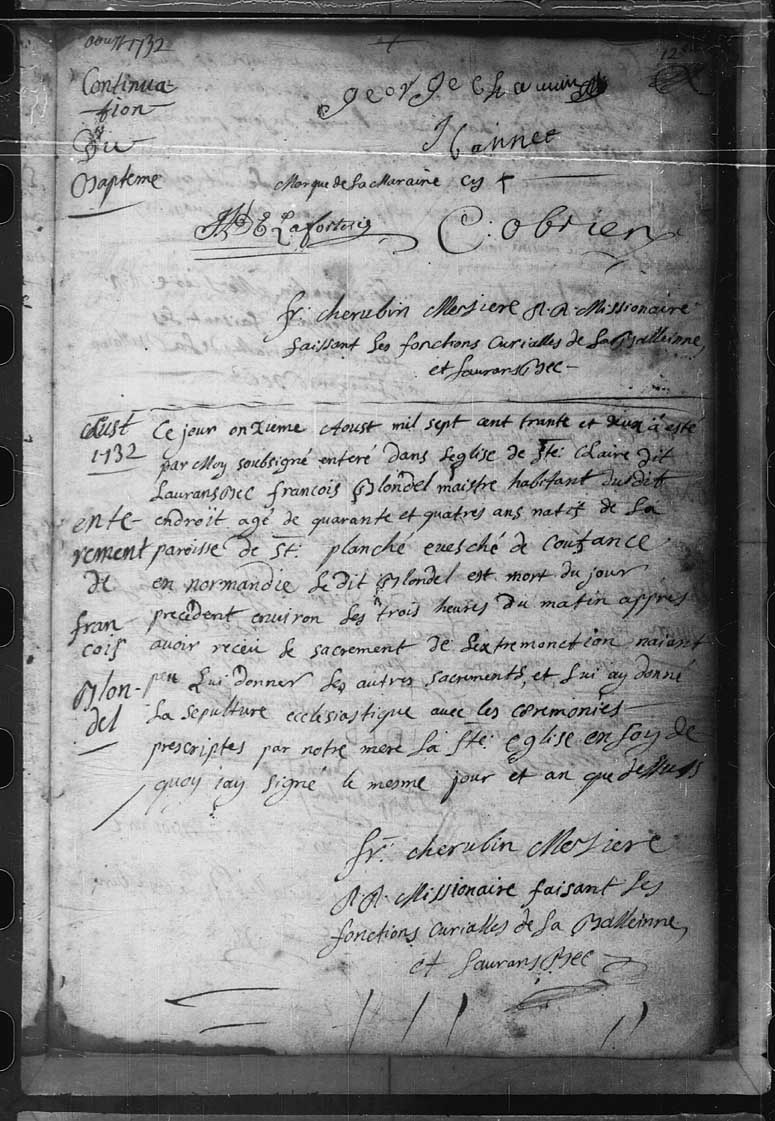 aoust 1732
12
Continua-
tion
Du
Bapteme
george Chauvin
J bannet
Marque de La Maraine cy +
Lafortris
C: obrien
fr: cherubin Mesiere R. R. Missionaire
faissant Les fonctions Curialles de La Balleinne,
et LauransBec -
Aust
1732
ente-
rement
de
fran
cois
Blon-
del
Ce jour onzieme Aoust mil sept cent trante et deux a este
par Moy soubsigné enteré dans Leglise de Ste: Claire dit
LauransBec francois Blondel maistre habitant dudit
endroit agé de quarante et quatres ans natif de La
paroisse de St: planché evesché de Coutance
en normandie Le dit Blondel est mort du jour
precedent environ Les trois heures du matin apprés
avoir receü Le sacrement de Lextremonction naiant
peu Lui donner Les autres sacrements, et Lui ay donné
La sepulture ecclesiastique avec les ceremonies
prescriptes par notre mere La Ste: Eglise en foy de
quoy jay signé le mesme jour et an que dessus
fr: cherubin Mesiere
R. R. Missionaire faisant Les
fonctions Curialles de La Balleinne,
et LauransBec